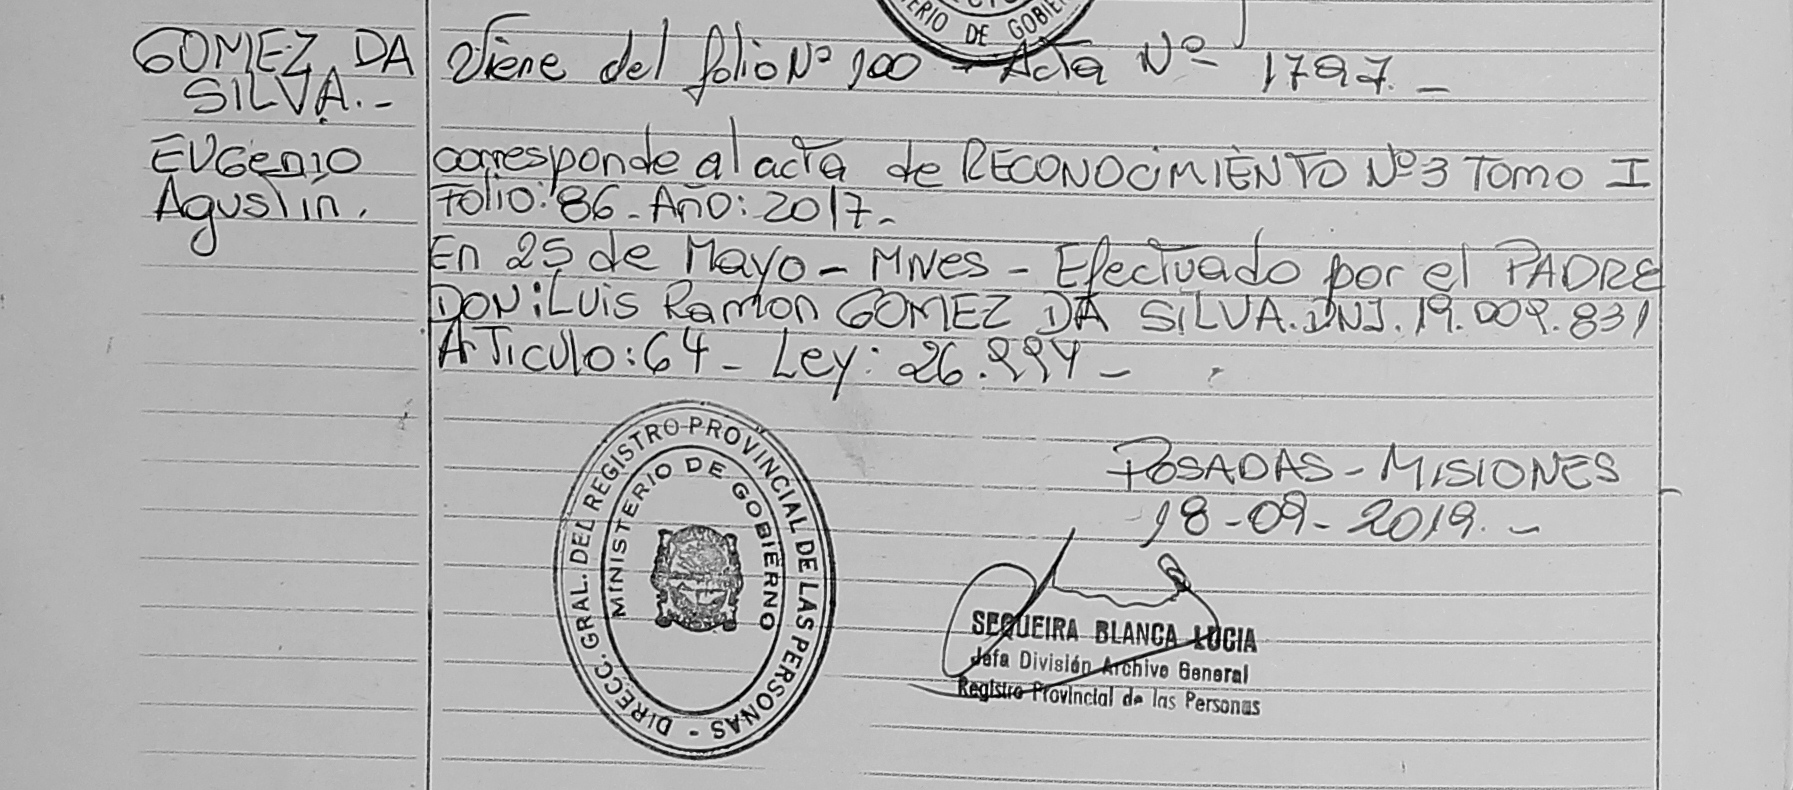 RIO DE GOBIER
GOMEZ DA
SILVA.-
EUGenio
Agustín.
Viene del folio Nº 100 - Acta Nº 1797.-
corresponde al acta de RECONOCiMIENTO Nº3 Tomo I
Folio: 86 - Año: 2017 -
En 25 de Mayo - MNes - Efectuado por el PADRE
DON: LUis Ramon GOMEZ DA SILVA. DNI. 19.009.831
ARTiculo: 64 - Ley: 26.994 -
POSADAS - MISIONES
18-09-2019.-
DIRECC. GRAL. DEL REGISTRO PROVINCIAL DE LAS PERSONAS -
MINISTERIO DE GOBIERNO
SEQUEIRA BLANCA LUCIA
Jefa División Archivo General
Registro Provincial de las Personas